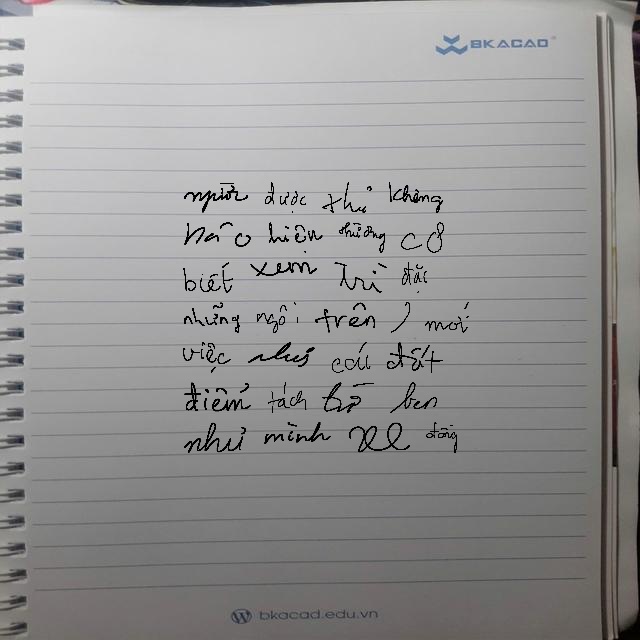 BKACAD
người được thứ không
báo hiện thường cỡ
biết xem trì đặc
những ngôi trên , mới
việc như cấu đất
điểm tách bỏ ben
như mình xe đồng
bkacad.edu.vn